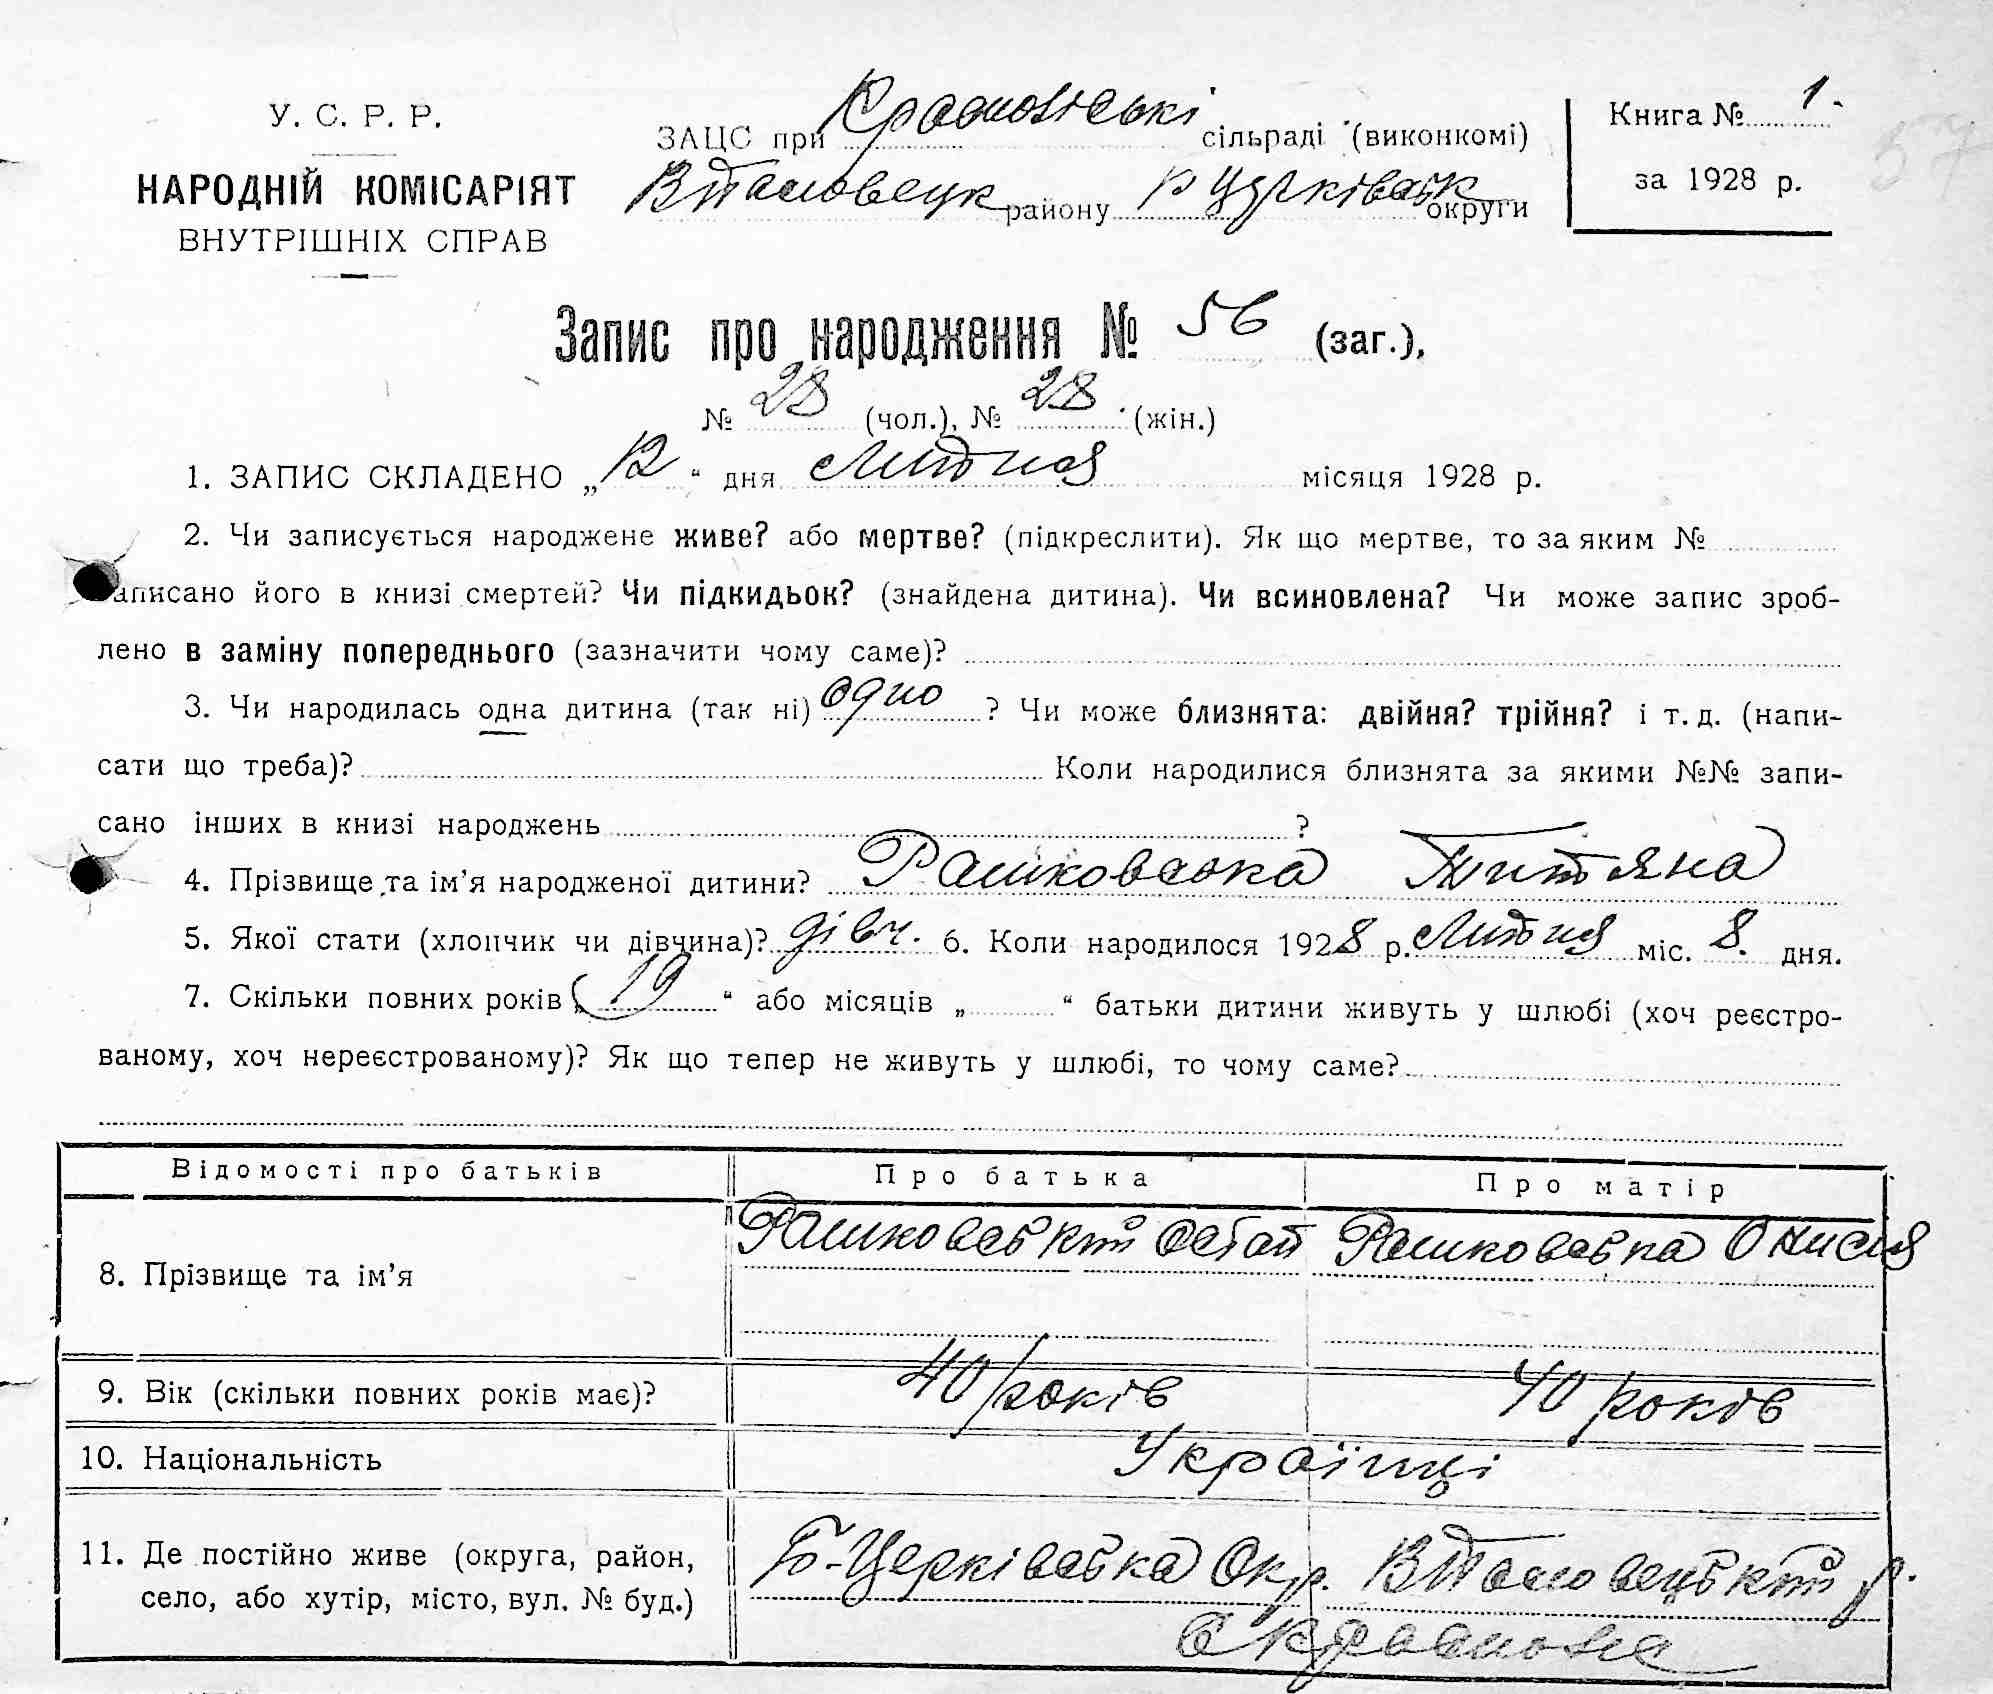 У. С. Р. Р.
НАРОДНІЙ КОМІСАРІЯТ
ВНУТРІШНІХ СПРАВ
ЗАЦС при сільраді (виконкомі)
району округи
Книга № 1.
за 1928 р.
57
Запис про народження № 56 (заг.),
№ 28 (чол.), № 28 (жін.)
1. ЗАПИС СКЛАДЕНО „12“ дня місяця 1928 р.
2. Чи записується народжене живе? або мертве? (підкреслити). Як що мертве, то за яким №
аписано його в книзі смертей? Чи підкидьок? (знайдена дитина). Чи всиновлена? Чи може запис зроб-
лено в заміну попереднього (зазначити чому саме)?
3. Чи народилась одна дитина (так ні) одно ? Чи може близнята: двійня? трійня? і т. д. (напи-
сати що треба)? Коли народилися близнята за якими №№ запи-
сано інших в книзі народжень ?
4. Прізвище та ім’я народженої дитини? Рашковська Титяна
5. Якої стати (хлопчик чи дівчина)? дівч. 6. Коли народилося 1928 р. міс. 8. дня.
7. Скільки повних років „19“ або місяців „ “ батьки дитини живуть у шлюбі (хоч реєстро-
ваному, хоч нереєстрованому)? Як що тепер не живуть у шлюбі, то чому саме?
Відомості про батьків Про батька Про матір
8. Прізвище та ім’я Рашковський Остап Рашковська Онисія
9. Вік (скільки повних років має)? 40 років 40 років
10. Національність Українці
11. Де постійно живе (округа, район,
село, або хутір, місто, вул. № буд.)
Б-Церківська Окр. р.